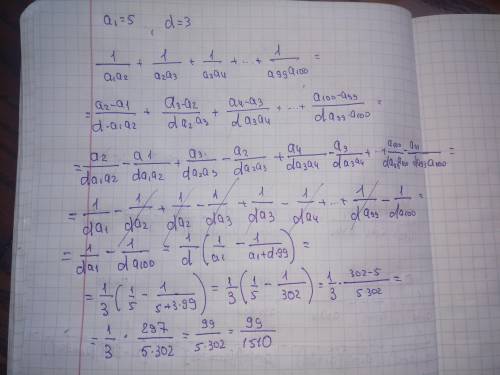 a₁=5 , d=3
1/(a₁a₂) + 1/(a₂a₃) + 1/(a₃a₄) + ... + 1/(a₉₉a₁₀₀) =
= (a₂-a₁)/(d·a₁a₂) + (a₃-a₂)/(da₂a₃) + (a₄-a₃)/(da₃a₄) + ... + (a₁₀₀-a₉₉)/(da₉₉·a₁₀₀) =
= a₂/(da₁a₂) - a₁/(da₁a₂) + a₃/(da₂a₃) - a₂/(da₂a₃) + a₄/(da₃a₄) - a₃/(da₃a₄) + ... + =
= 1/(da₁) - 1/(da₂) + 1/(da₂) - 1/(da₃) + 1/(da₃) - 1/(da₄) + ... + 1/(da₉₉) - 1/(da₁₀₀) =
= 1/(da₁) - 1/(da₁₀₀) = 1/d (1/a₁ - 1/(a₁+d·99)) =
= 1/3 (1/5 - 1/(5+3·99)) = 1/3 (1/5 - 1/302) = 1/3 · (302-5)/(5·302) =
= 1/3 · 297/(5·302) = 99/(5·302) = 99/1510